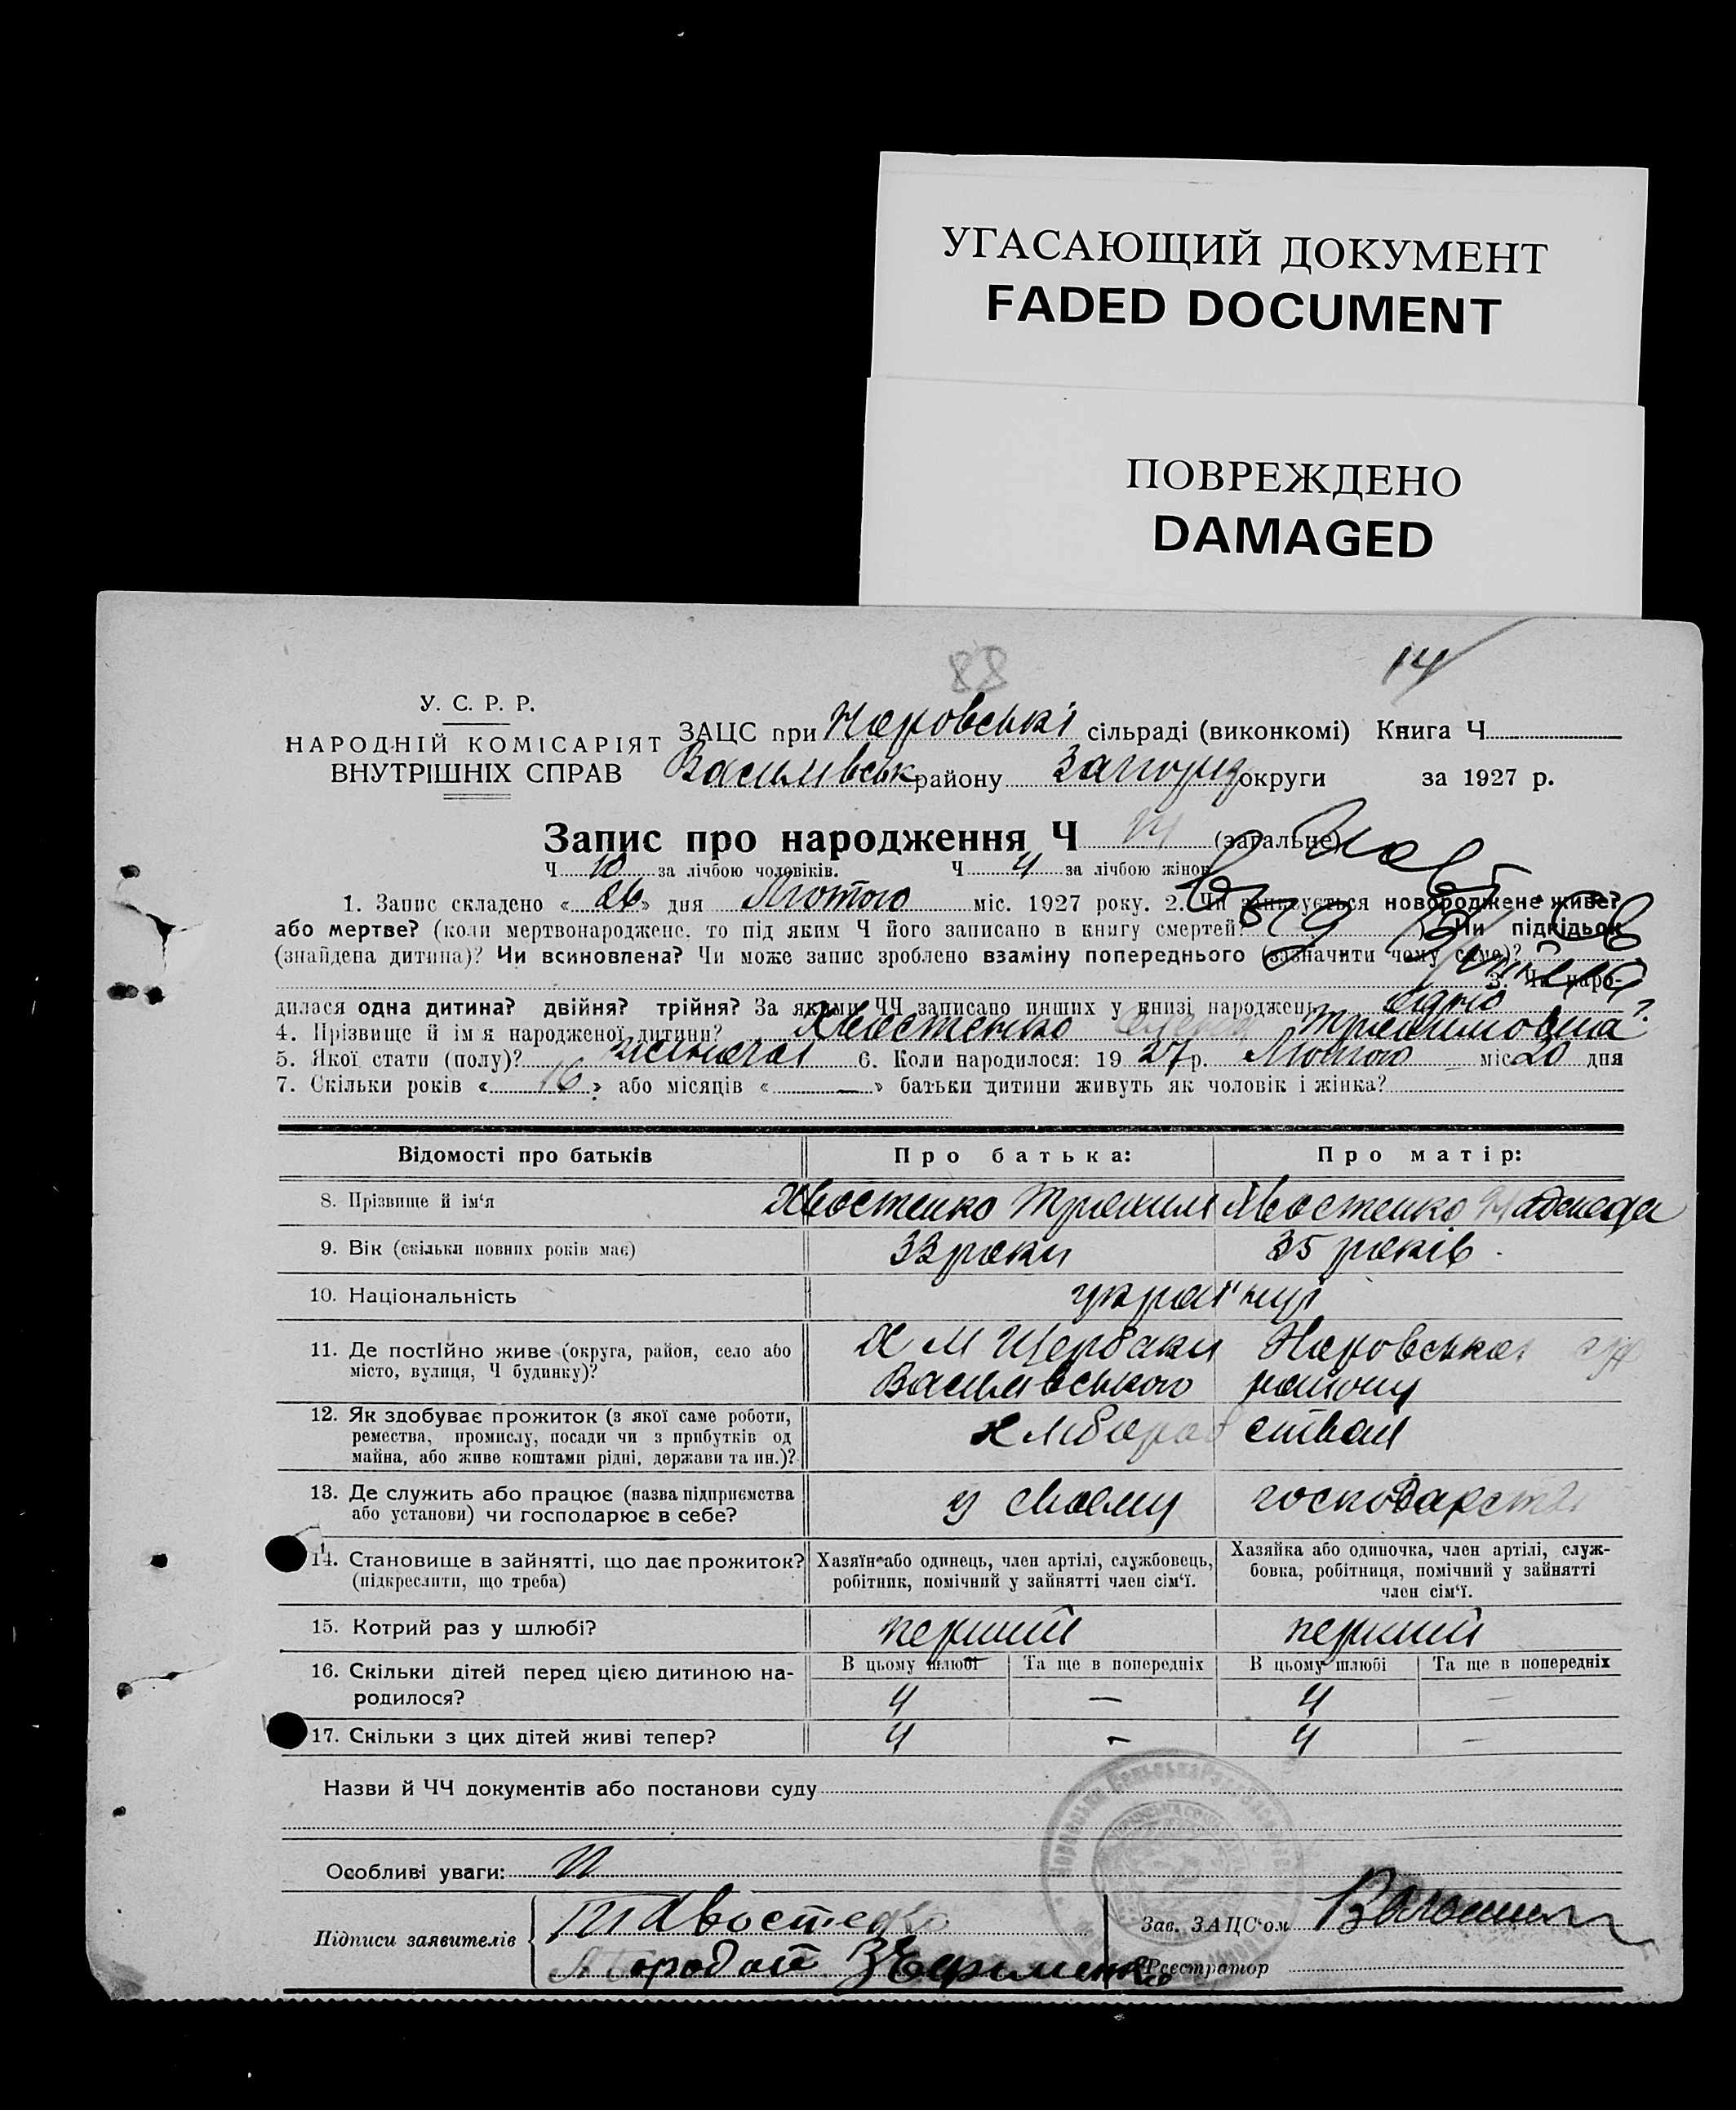 УГАСАЮЩИЙ ДОКУМЕНТ
FADED DOCUMENT
ПОВРЕЖДЕНО
DAMAGED
88
14
У. С. Р. Р.
НАРОДНІЙ КОМІСАРІЯТ
ВНУТРІШНІХ СПРАВ
ЗАЦС при сільраді (виконкомі) Книга Ч
Василівськ району Запоріз округи за 1927 р.
Запис про народження Ч 14 (загальне)
Ч 10 за лічбою чоловіків. Ч 4 за лічбою жінок
1. Запис складено « 26 » дня Лютого міс. 1927 року. 2. Чи записується новороджене живе?
або мертве? (коли мертвонароджене, то під яким Ч його записано в книгу смертей? ) Чи підкідьок
(знайдена дитина)? Чи всиновлена? Чи може запис зроблено взаміну попереднього (зазначити чому саме)?
3. Чи наро-
дилася одна дитина? двійня? трійня? За якими ЧЧ записано инших у книзі народжень одно
4. Прізвище й ім'я народженої дитини? Хвостенко Трохимовна
5. Якої стати (полу)? жіночоі 6. Коли народилося: 19 27 р. Лютого міс 20 дня
7. Скільки років « 16 » або місяців « — » батьки дитини живуть як чоловік і жінка?
Відомості про батьків Про батька: Про матір:
8. Прізвище й ім'я Хвостенко Трохим Хвостенко
9. Вік (скільки повних років має) 33 роки 35 років
10. Національність українці
11. Де постійно живе (округа, район, село або Щербаки
місто, вулиця, Ч будинку)? Василівського району
12. Як здобуває прожиток (з якої саме роботи,
ремества, промислу, посади чи з прибутків од
майна, або живе коштами рідні, держави та ин.)?
13. Де служить або працює (назва підприємства у своему господарстві
або установи) чи господарює в себе?
14. Становище в зайнятті, що дає прожиток?
(підкреслити, що треба)
Хазяїн або одинець, член артілі, службовець,
робітник, помічний у зайнятті член сім'ї.
Хазяйка або одиночка, член артілі, служ-
бовка, робітниця, помічний у зайнятті
член сім'ї.
15. Котрий раз у шлюбі? перший перший
16. Скільки дітей перед цією дитиною на-
родилося?
В цьому шлюбі Та ще в попередніх В цьому шлюбі Та ще в попередніх
4 — 4 —
17. Скільки з цих дітей живі тепер? 4 - 4 —
Назви й ЧЧ документів або постанови суду
Особливі уваги:
Підписи заявителів Хвостенко
Зав. ЗАЦС'ом
Реєстратор